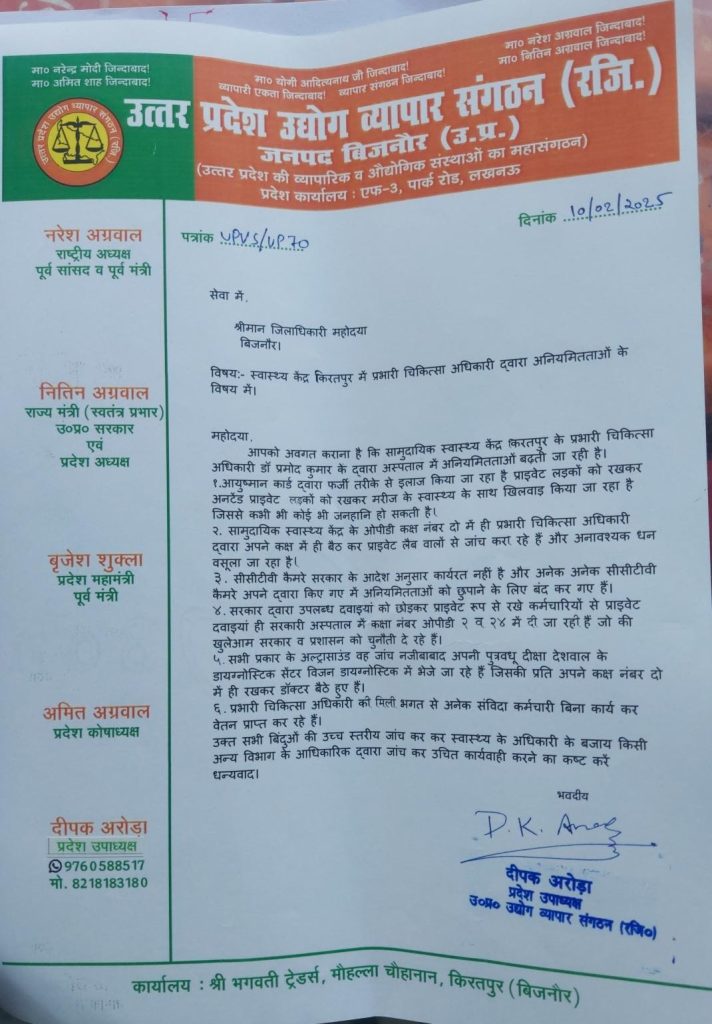 मा० नरेन्द्र मोदी जिन्दाबाद!
मा० अमित शाह जिन्दाबाद!
मा० योगी आदित्यनाथ जी जिन्दाबाद!
व्यापारी एकता जिन्दाबाद! व्यापार संगठन जिन्दाबाद!
मा० नरेश अग्रवाल जिन्दाबाद!
मा० नितिन अग्रवाल जिन्दाबाद!
उत्तर प्रदेश उद्योग व्यापार संगठन (रजि.)
जनपद बिजनौर (उ.प्र.)
(उत्तर प्रदेश की व्यापारिक व औद्योगिक संस्थाओं का महासंगठन)
प्रदेश कार्यालय : एफ-3, पार्क रोड, लखनऊ
उत्तर प्रदेश उद्योग व्यापार संगठन (रजि.)
पत्रांक UPVS/UP70
दिनांक 10/02/2025
नरेश अग्रवाल
राष्ट्रीय अध्यक्ष
पूर्व सांसद व पूर्व मंत्री
नितिन अग्रवाल
राज्य मंत्री (स्वतंत्र प्रभार)
उ०प्र० सरकार
एवं
प्रदेश अध्यक्ष
बृजेश शुक्ला
प्रदेश महामंत्री
पूर्व मंत्री
अमित अग्रवाल
प्रदेश कोषाध्यक्ष
दीपक अरोड़ा
प्रदेश उपाध्यक्ष
9760588517
मो. 8218183180
सेवा में,
श्रीमान जिलाधिकारी महोदया
बिजनौर।
विषय:- स्वास्थ्य केंद्र किरतपुर में प्रभारी चिकित्सा अधिकारी द्वारा अनियमितताओं के
विषय में।
महोदया,
आपको अवगत कराना है कि सामुदायिक स्वास्थ्य केंद्र किरतपुर के प्रभारी चिकित्सा
अधिकारी डॉ प्रमोद कुमार के द्वारा अस्पताल में अनियमितताओं बढ़ती जा रही है।
१.आयुष्मान कार्ड द्वारा फर्जी तरीके से इलाज किया जा रहा है प्राइवेट लड़कों को रखकर
अनटेंड प्राइवेट लड़कों को रखकर मरीज के स्वास्थ्य के साथ खिलवाड़ किया जा रहा है
जिससे कभी भी कोई भी जनहानि हो सकती है।
२. सामुदायिक स्वास्थ्य केंद्र के ओपीडी कक्ष नंबर दो में ही प्रभारी चिकित्सा अधिकारी
द्वारा अपने कक्ष में ही बैठ कर प्राइवेट लैब वालों से जांच करा रहे हैं और अनावश्यक धन
वसूला जा रहा है।
३. सीसीटीवी कैमरे सरकार के आदेश अनुसार कार्यरत नहीं है और अनेक अनेक सीसीटीवी
कैमरे अपने द्वारा किए गए में अनियमितताओं को छुपाने के लिए बंद कर गए हैं।
४. सरकार द्वारा उपलब्ध दवाइयां को छोड़कर प्राइवेट रूप से रखे कर्मचारियों से प्राइवेट
दवाइयां ही सरकारी अस्पताल में कक्षा नंबर ओपीडी २ व् २४ में दी जा रही हैं जो की
खुलेआम सरकार व प्रशासन को चुनौती दे रहे हैं।
५. सभी प्रकार के अल्ट्रासाउंड वह जांच नजीबाबाद अपनी पुत्रवधू दीक्षा देशवाल के
डायग्नोस्टिक सेंटर विजन डायग्नोस्टिक में भेजे जा रहे हैं जिसकी प्रति अपने कक्ष नंबर दो
में ही रखकर डॉक्टर बैठे हुए हैं।
६. प्रभारी चिकित्सा अधिकारी की मिली भगत से अनेक संविदा कर्मचारी बिना कार्य कर
वेतन प्राप्त कर रहे हैं।
उक्त सभी बिंदुओं की उच्च स्तरीय जांच कर कर स्वास्थ्य के अधिकारी के बजाय किसी
अन्य विभाग के आधिकारिक द्वारा जांच कर उचित कार्यवाही करने का कष्ट करें
धन्यवाद।
भवदीय
दीपक अरोड़ा
प्रदेश उपाध्यक्ष
उ०प्र० उद्योग व्यापार संगठन (रजि०)
कार्यालय : श्री भगवती ट्रेडर्स, मौहल्ला चौहानान, किरतपुर (बिजनौर)